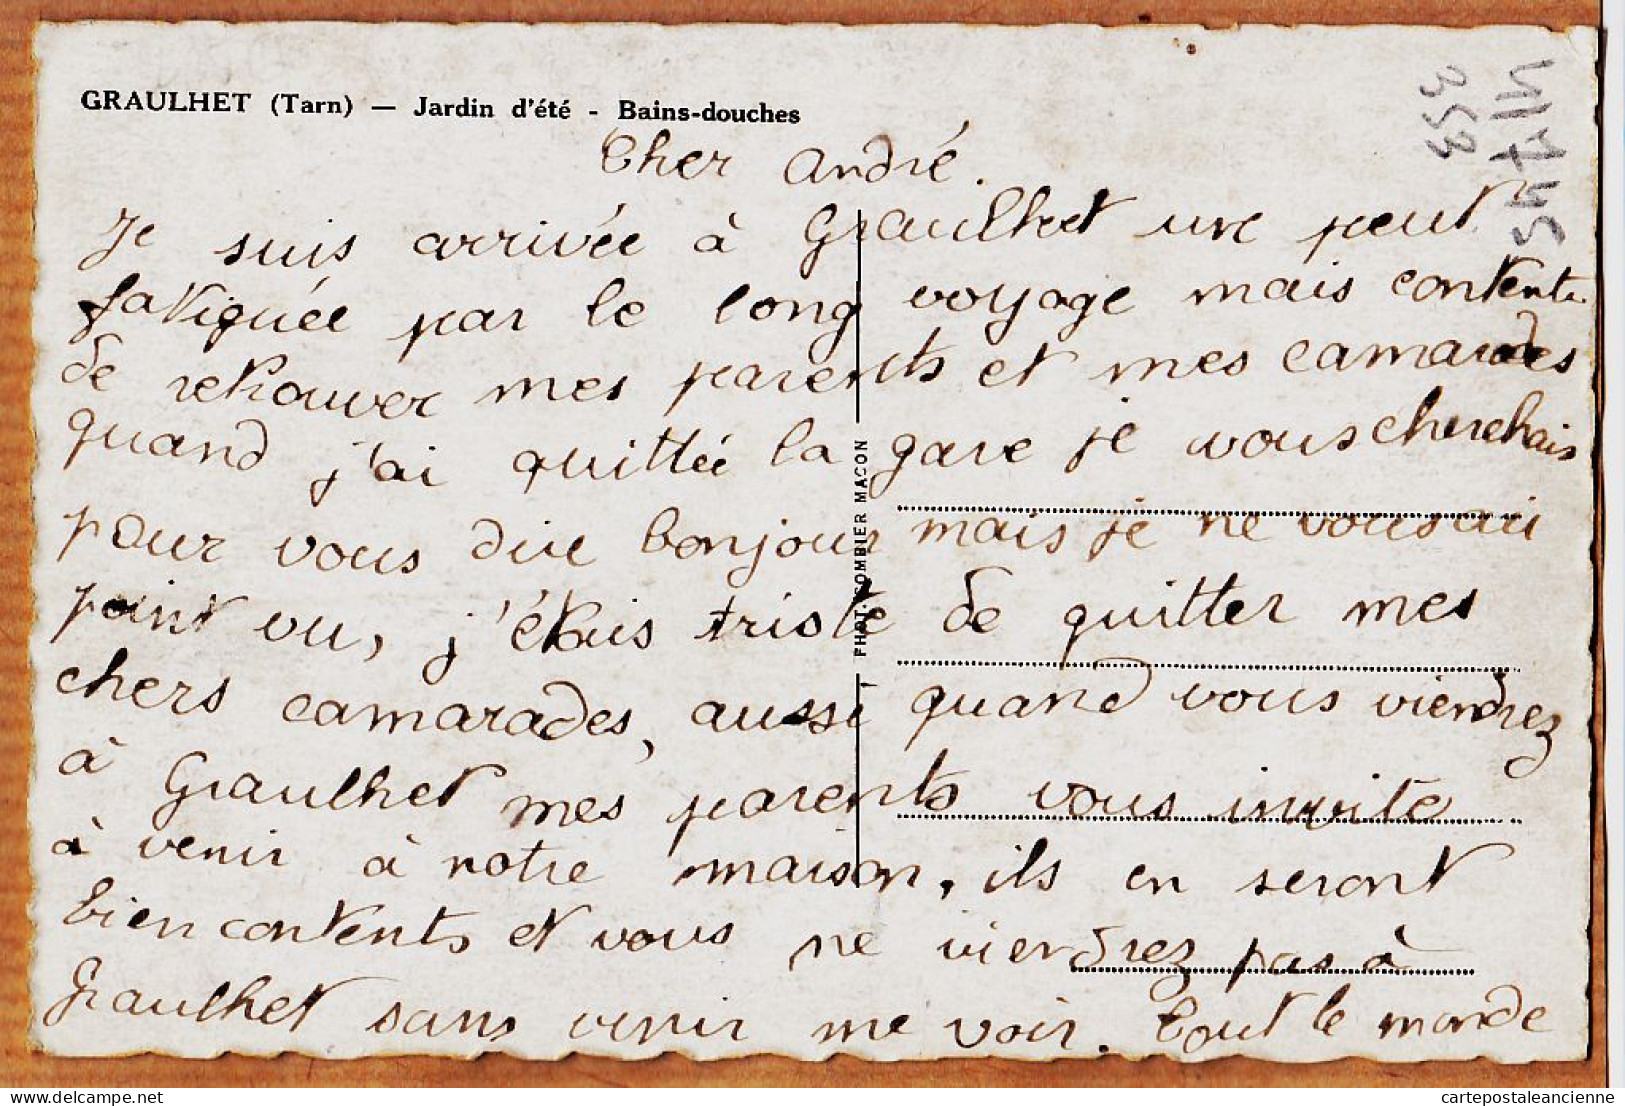 GRAULHET (Tarn) — Jardin d'été - Bains-douches
353
Cher André.
Je suis arrivée à Graulhet une peut
fatiguée par le long voyage mais contente
de retrouver mes parents et mes camarades
quand j'ai quittée la gare je vous cherchais
pour vous dire bonjour mais je ne vous ai
point vu, j'étais triste de quitter mes
chers camarades, aussi quand vous viendrez
à Graulhet mes parents vous invite
à venir à notre maison, ils en seront
bien contents et vous ne viendrez pas à
Graulhet sans venir me voir. Tout le monde
PHOT. COMBIER MACON
delcampe.net
cartepostaleancienne